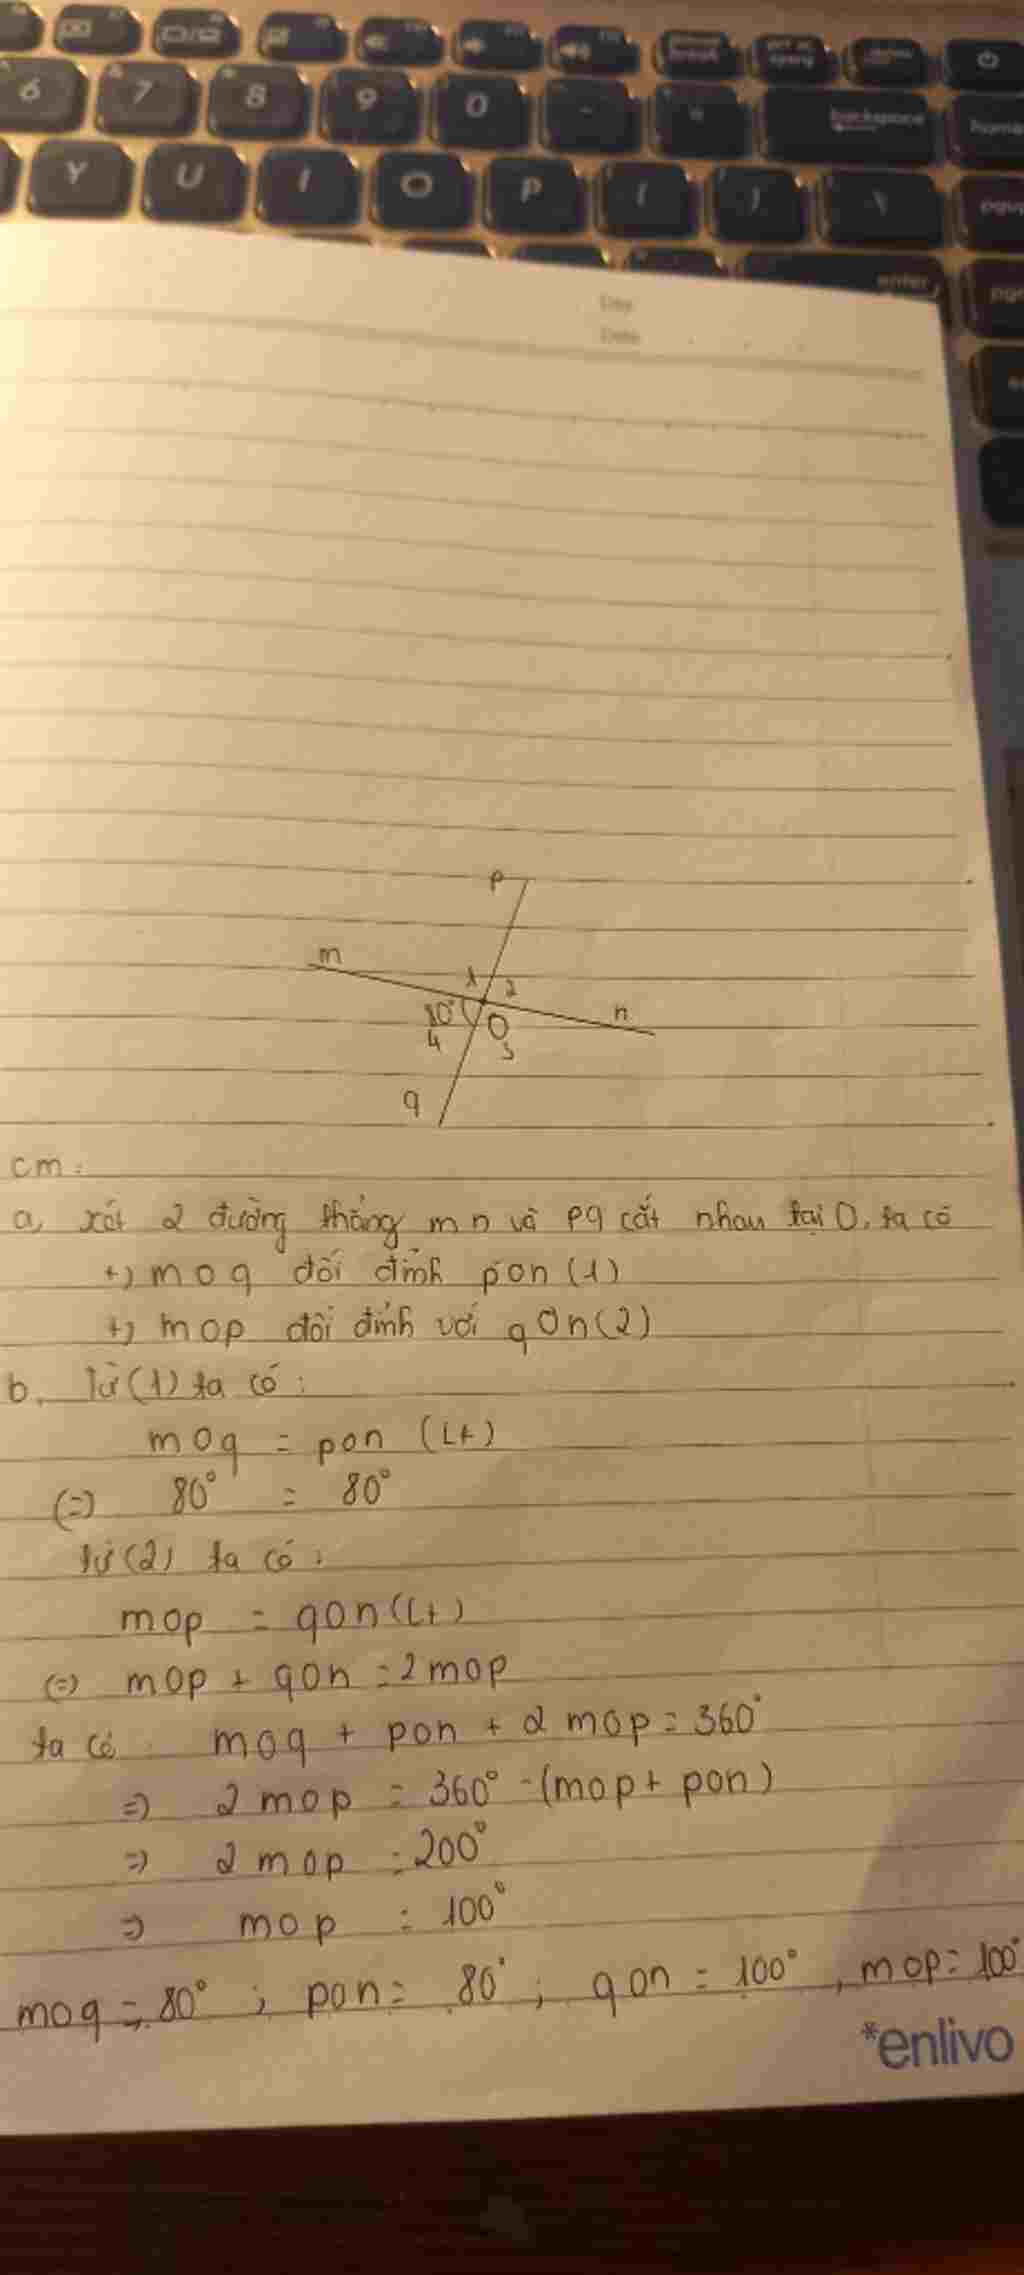 6 7 8 9 0 - = backspace home
Y U I O P [ ] \ pgup
enter
Day
Date
p
m
1 2
n
80°
O
4
3
q
cm:
a, xét 2 đường thẳng mn và pq cắt nhau tại O, ta có
+) moq đối đỉnh pon (1)
+) mop đối đỉnh với qOn (2)
b. Từ (1) ta có:
moq = pon (Lt)
(=) 80° = 80°
từ (2) ta có:
mop = qon (Lt)
(=) mop + qon = 2 mop
ta có: moq + pon + 2 mop = 360°
=) 2 mop = 360° - (mop + pon)
=) 2 mop = 200°
=) mop = 100°
moq = 80° ; pon = 80° ; qon = 100° , mop = 100°
*enlivo